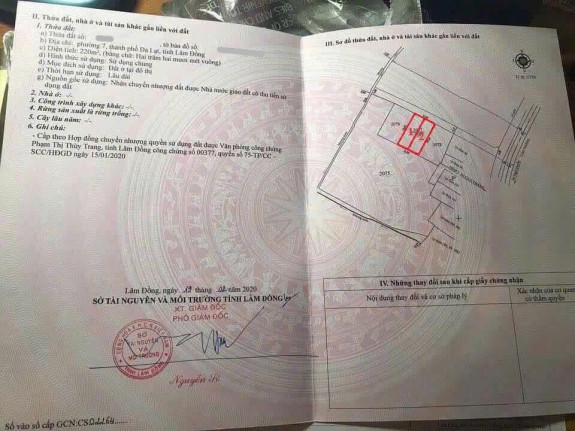 II. Thửa đất, nhà ở và tài sản khác gắn liền với đất
1. Thửa đất:
a) Thửa đất số: , tờ bản đồ số:
b) Địa chỉ: phường 7, thành phố Đà Lạt, tỉnh Lâm Đồng
c) Diện tích: 220m², (bằng chữ: Hai trăm hai mươi mét vuông)
d) Hình thức sử dụng: Sử dụng chung
đ) Mục đích sử dụng: Đất ở tại đô thị
e) Thời hạn sử dụng: Lâu dài
g) Nguồn gốc sử dụng: Nhận chuyển nhượng đất được Nhà nước giao đất có thu tiền sử
dụng đất
2. Nhà ở: -/-
3. Công trình xây dựng khác: -/-
4. Rừng sản xuất là rừng trồng: -/-
5. Cây lâu năm: -/-
6. Ghi chú:
- Cấp theo Hợp đồng chuyển nhượng quyền sử dụng đất được Văn phòng công chứng
Phạm Thị Thùy Trang, tỉnh Lâm Đồng công chứng số 00377, quyển số 75-TP/CC -
SCC/HĐGD ngày 15/01/2020
Lâm Đồng, ngày tháng năm 2020
SỞ TÀI NGUYÊN VÀ MÔI TRƯỜNG TỈNH LÂM ĐỒNG
KT. GIÁM ĐỐC
PHÓ GIÁM ĐỐC
SỞ
TÀI NGUYÊN
VÀ
MÔI TRƯỜNG
TỈNH LÂM ĐỒNG
Số vào sổ cấp GCN:CS
III. Sơ đồ thửa đất, nhà ở và tài sản khác gắn liền với đất
2075
IV. Những thay đổi sau khi cấp giấy chứng nhận
Nội dung thay đổi và cơ sở pháp lý
Xác nhận của cơ quan
có thẩm quyền